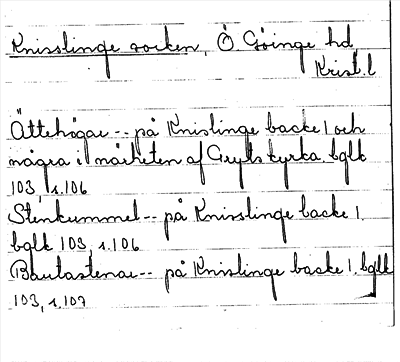 Knisslinge socken, Ö. Göinge hd
Krist. l
Ättehögar -- på Knislinge backe l och
några i närheten af Gryts kyrka. bglk
103, s. 106
Stenkummel -- på Knisslinge backe l.
bglk 103, s. 106
Bautastenar -- på Knisslinge backe l. bglk
103, s. 107